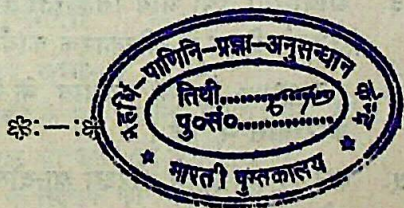 महर्षि-पाणिनि-प्रज्ञा-अनुसन्धान
तिथी..............
पु०सं०..............
* भारती पुस्तकालय *
❀:—:❀